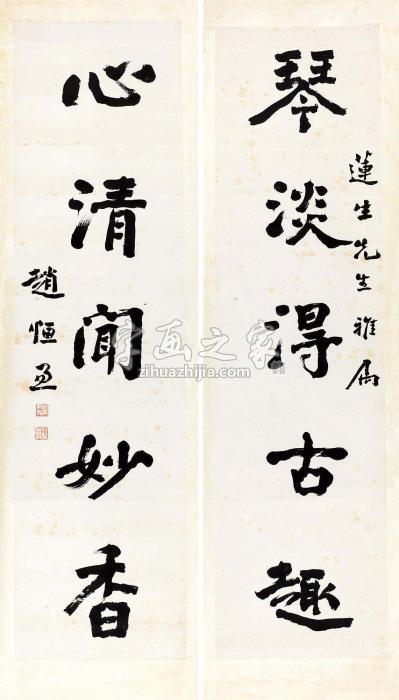 蓮生先生雅属
琴淡淂古趣
心清聞妙香
趙恒惕
字画之家
zihuazhijia.com